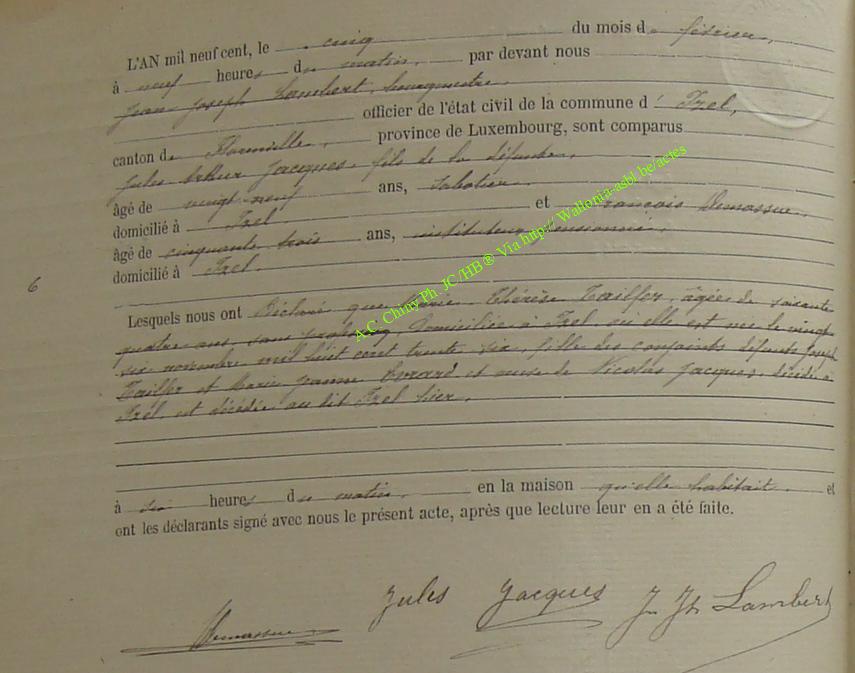 L'AN mil neuf cent, le cinq du mois de février,
à neuf heures du matin, par devant nous
Jean Joseph Lambert, bourgmestre
officier de l'état civil de la commune d' Izel,
canton de Florenville, province de Luxembourg, sont comparus
Jules Arthur Jacques, fils de la défunte,
âgé de vingt-neuf ans, sabotier
domicilié à Izel et François Demassue
âgé de cinquante trois ans, instituteur pensionné,
domicilié à Izel.
6
Lesquels nous ont déclaré que Marie Thérèse Tailfer, âgée de soixante
quatre ans, sans profession domiciliée à Izel, où elle est née le vingt
six novembre mil huit cent trente six, fille des conjoints défunts Joseph
Tailfer et Marie Jeanne et veuve de Nicolas Jacques, décédé à
Izel, est décédée au dit Izel hier,
à six heures du matin, en la maison qu'elle habitait, et
ont les déclarants signé avec nous le présent acte, après que lecture leur en a été faite.
Jules Jacques J. Jh Lambert
A.C. Chiny Ph. JC/HB® Via http://Wallonia-asbl.be/actes